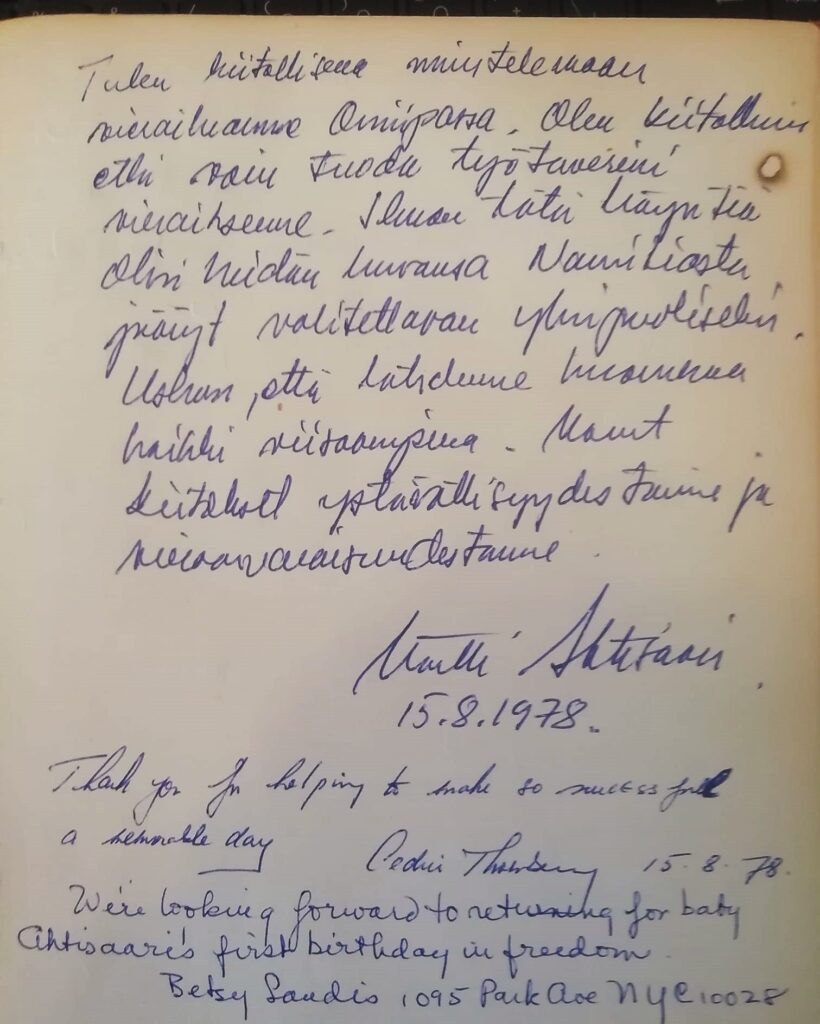 Tulen kiitollisena muistelemaan
vierailuamme Oniipassa. Olen kiitollinen
että voin tuoda työtoverini
vieraiksenne. Ilman tätä käyntiä
olisi heidän kuvansa Namibiasta
jäänyt valitettavan yksipuoliseksi.
Uskon, että lähdemme huomenna
kaikki viisaampina. Monet
kiitokset ystävällisyydestänne ja
vieraanvaraisuudestanne.
Martti Ahtisaari
15.8.1978.
Thank you for helping to make so successful
a memorable day
Cedric Thornberry 15.8.78.
We're looking forward to returning for baby
Ahtisaari's first birthday in freedom.
Betsy Landis 1095 Park Ave NYC 10028